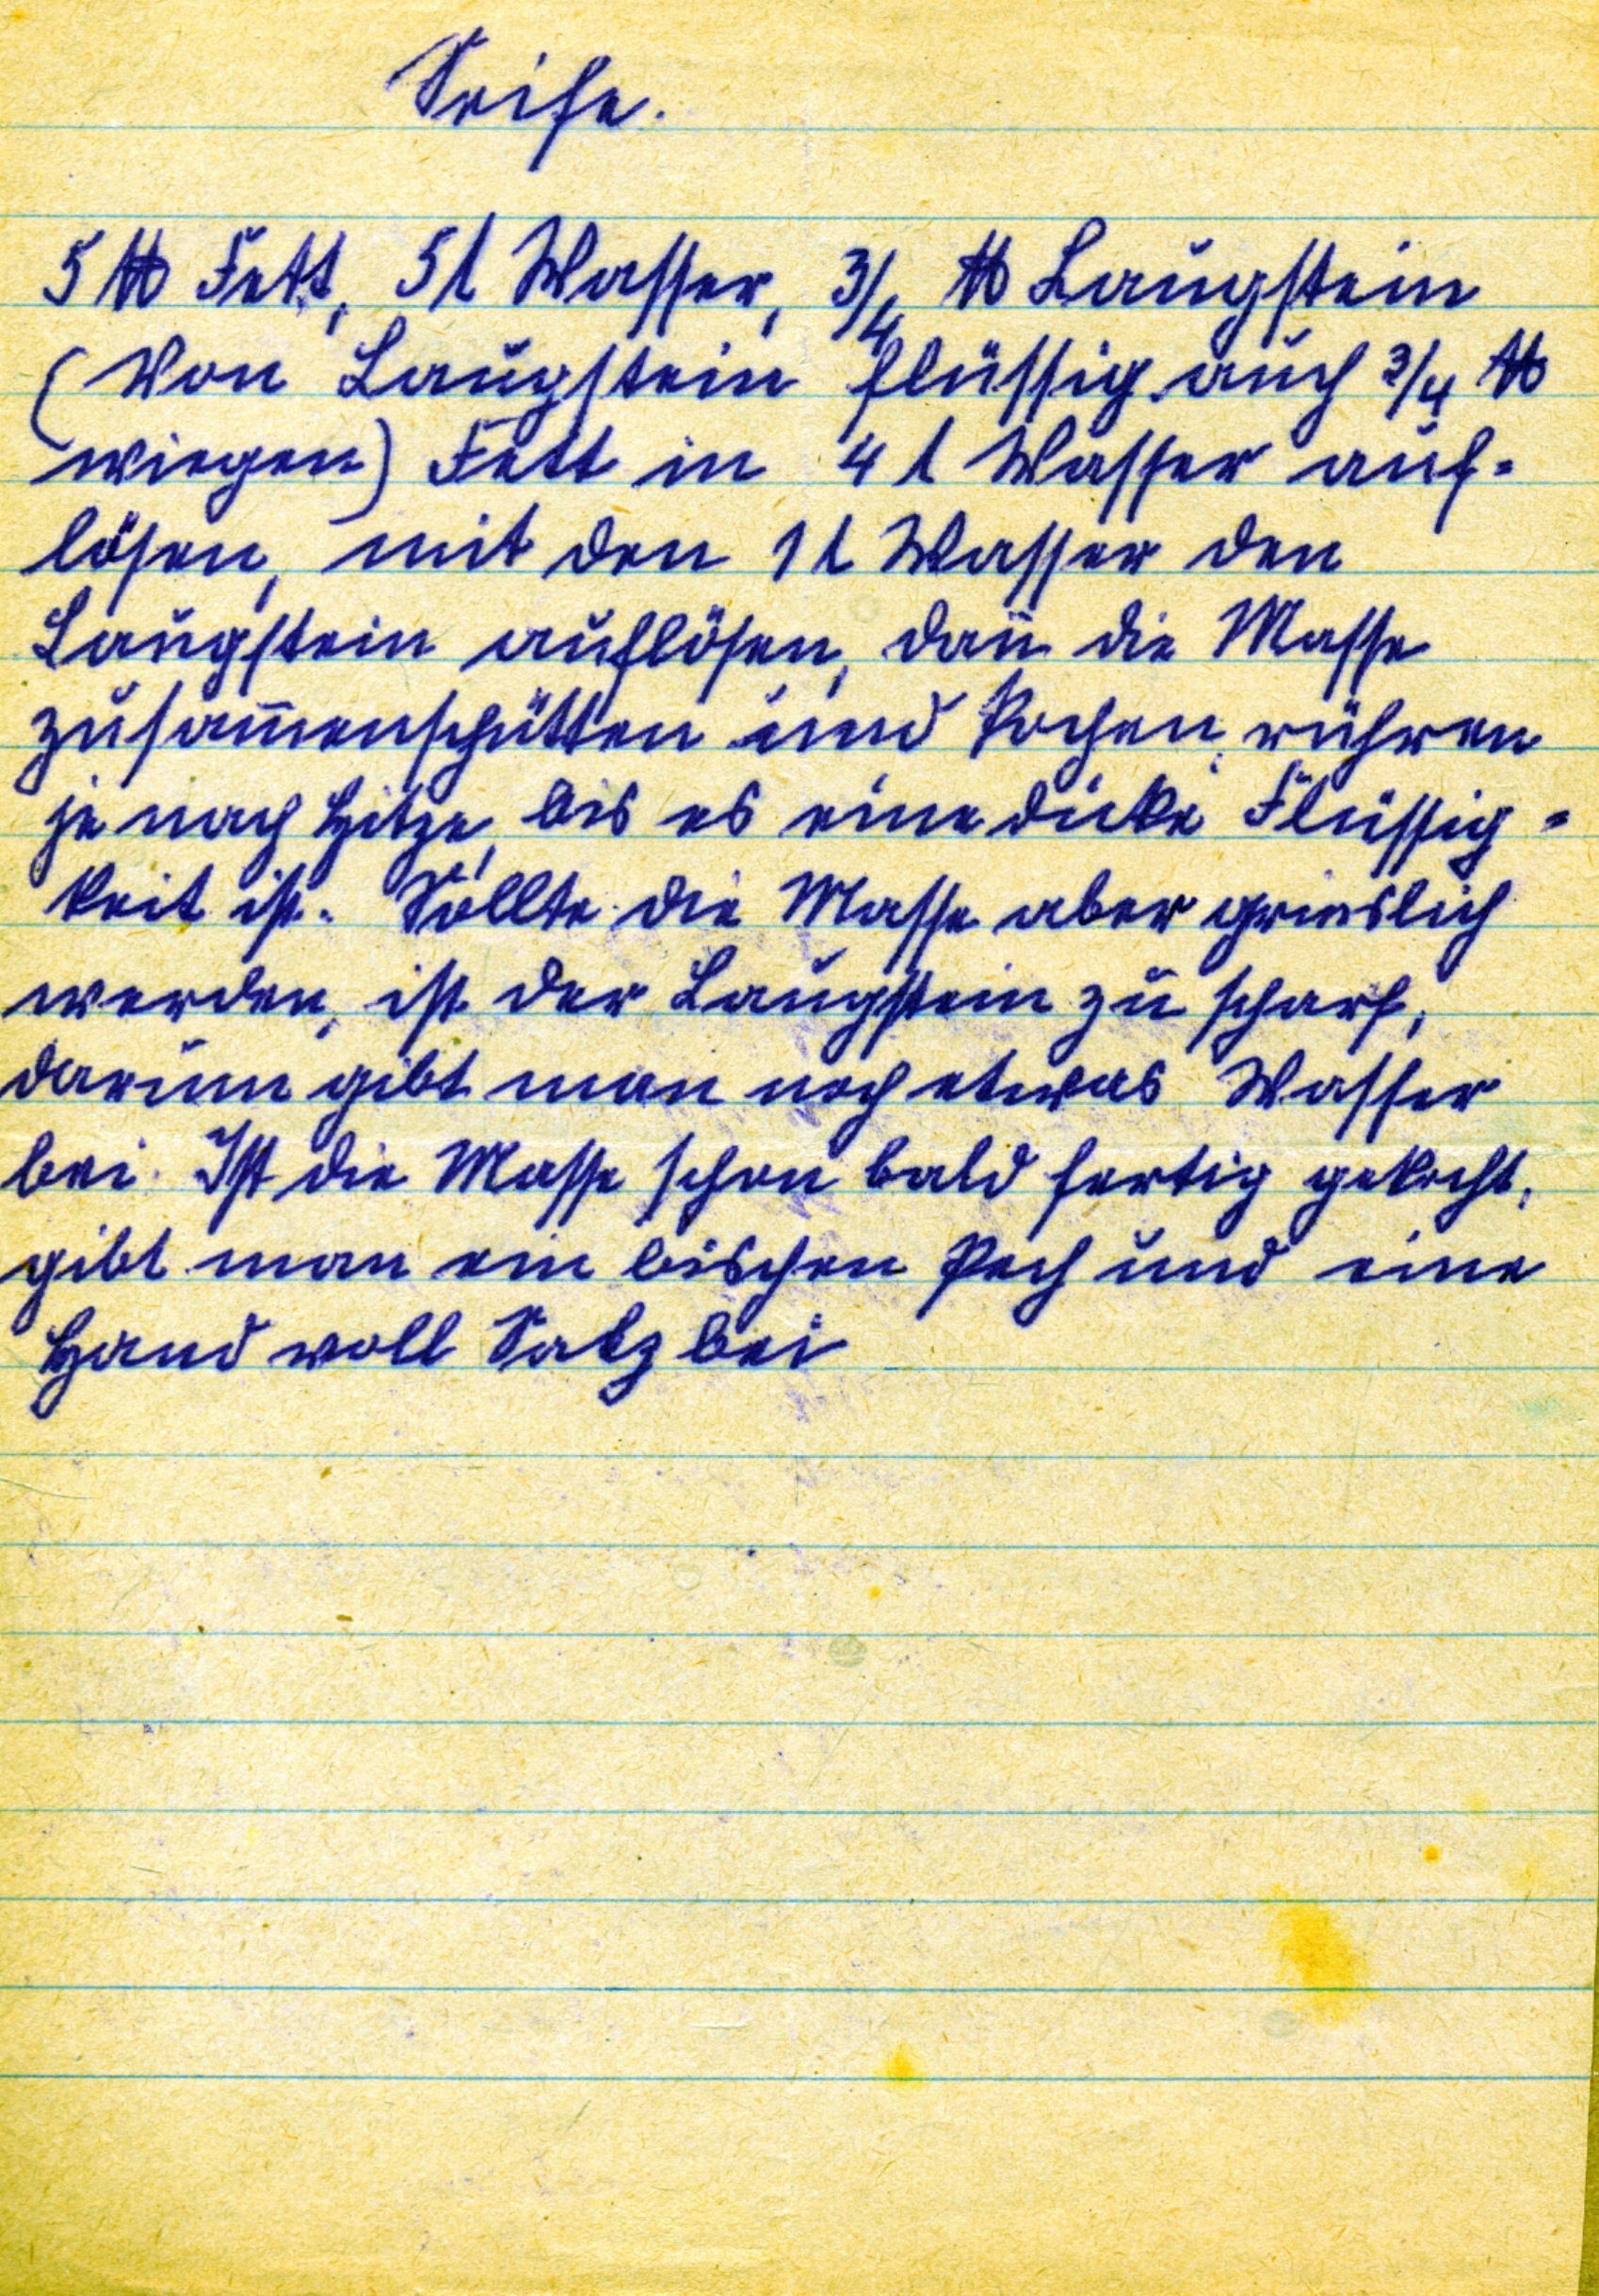 Seife.
5 ℔ Fett, 5 l Wasser, 3/4 ℔ Laugstein
(Von Laugstein flüssig auch 3/4 ℔
wiegen) Fett in 4 l Wasser auf-
lösen, mit den 1 l Wasser den
Laugstein auflösen, dan̄ die Masse
zusam̄enschütten und kochen, rühren
je nach Hitze, bis es eine dicke Flüssig-
keit ist. Sollte die Masse aber grieslich
werden, ist der Laugstein zu scharf,
darum gibt man noch etwas Wasser
bei. Ist die Masse schon bald fertig gekocht,
gibt man ein bischen Pech und eine
Hand voll Salz bei